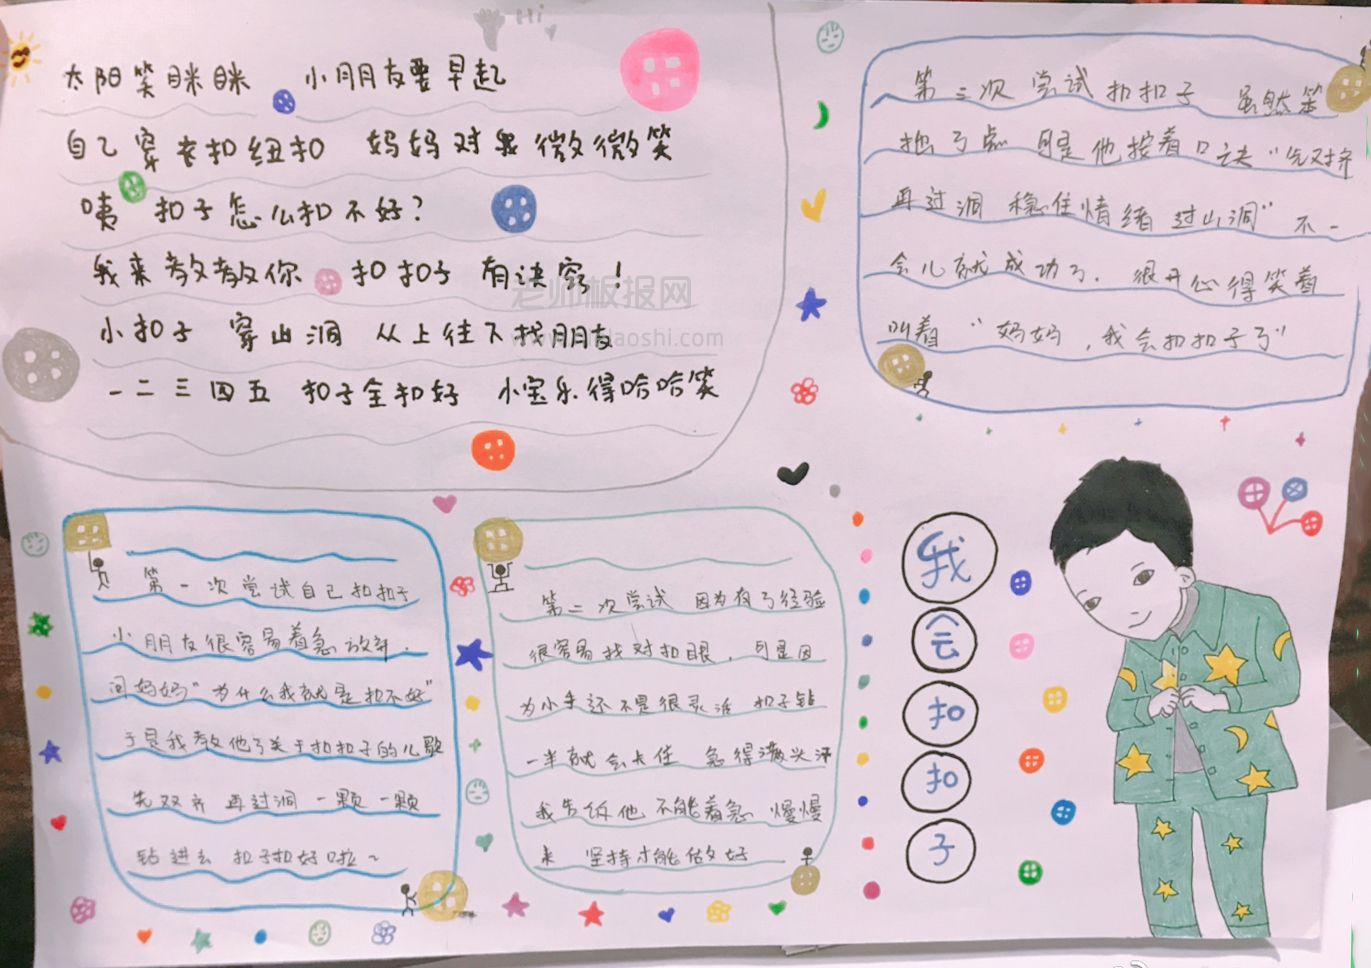 Hi
太阳笑眯眯 小朋友要早起
自己穿衣扣纽扣 妈妈对我微微笑
咦 扣子怎么扣不好?
我来教教你 扣扣子 有诀窍!
小扣子 穿山洞 从上往下找朋友
一二三四五 扣子全扣好 小宝乐得哈哈笑
老师板报网
www.banlaoshi.com
第三次尝试扣扣子 虽然笨
拙了点 可是他按着口诀“先对齐
再过洞 稳住情绪 过山洞”不一
会儿就成功了. 很开心得笑着
叫着“妈妈,我会扣扣子了”
第一次尝试自己扣扣子
小朋友很容易着急放弃.
问妈妈“为什么我就是扣不好”
于是我教他了关于扣扣子的儿歌
先双齐 再过洞 一颗一颗
钻进去 扣子扣好啦~
第二次尝试 因为有了经验
很容易找对扣眼,可是因
为小手还不是很灵活 扣子钻
一半就会卡住 急得满头汗
我告诉他 不能着急 慢慢
来 坚持才能做好
我
会
扣
扣
子